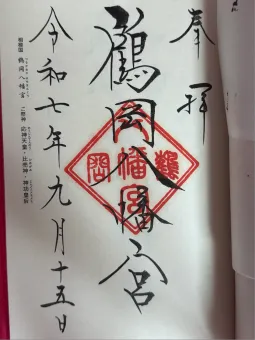 奉拝
鶴岡八幡宮
令和七年九月十五日
相模国 鶴岡八幡宮
ご祭神 応神天皇・比売神・神功皇后